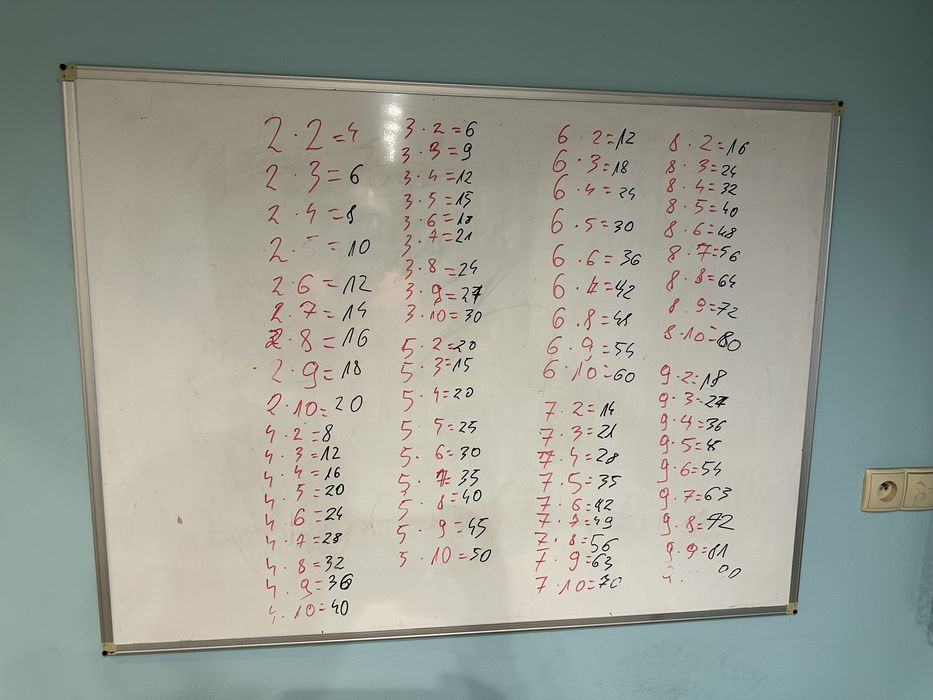 2 · 2 = 4
2 · 3 = 6
2 · 4 = 8
2 · 5 = 10
2 · 6 = 12
2 · 7 = 14
2 · 8 = 16
2 · 9 = 18
2 · 10 = 20
4 · 2 = 8
4 · 3 = 12
4 · 4 = 16
4 · 5 = 20
4 · 6 = 24
4 · 7 = 28
4 · 8 = 32
4 · 9 = 36
4 · 10 = 40
3 · 2 = 6
3 · 3 = 9
3 · 4 = 12
3 · 5 = 15
3 · 6 = 18
3 · 7 = 21
3 · 8 = 24
3 · 9 = 27
3 · 10 = 30
5 · 2 = 20
5 · 3 = 15
5 · 4 = 20
5 · 5 = 25
5 · 6 = 30
5 · 7 = 35
5 · 8 = 40
5 · 9 = 45
5 · 10 = 50
6 · 2 = 12
6 · 3 = 18
6 · 4 = 24
6 · 5 = 30
6 · 6 = 36
6 · 7 = 42
6 · 8 = 48
6 · 9 = 54
6 · 10 = 60
7 · 2 = 14
7 · 3 = 21
7 · 4 = 28
7 · 5 = 35
7 · 6 = 42
7 · 7 = 49
7 · 8 = 56
7 · 9 = 63
7 · 10 = 70
8 · 2 = 16
8 · 3 = 24
8 · 4 = 32
8 · 5 = 40
8 · 6 = 48
8 · 7 = 56
8 · 8 = 64
8 · 9 = 72
8 · 10 = 80
9 · 2 = 18
9 · 3 = 27
9 · 4 = 36
9 · 5 = 45
9 · 6 = 54
9 · 7 = 63
9 · 8 = 72
9 · 9 = 81
90